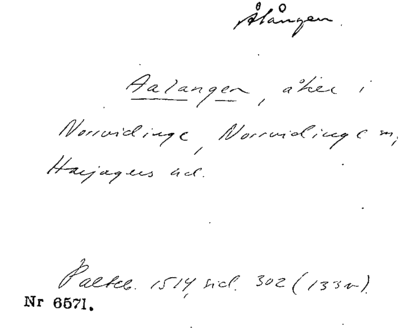 Ålången.
Aalangen, åker i
Norrvidinge, Norrvidinge m,
Harjagers hd.
Palteb. 1514, sid. 302 (133m).
Nr 6571.